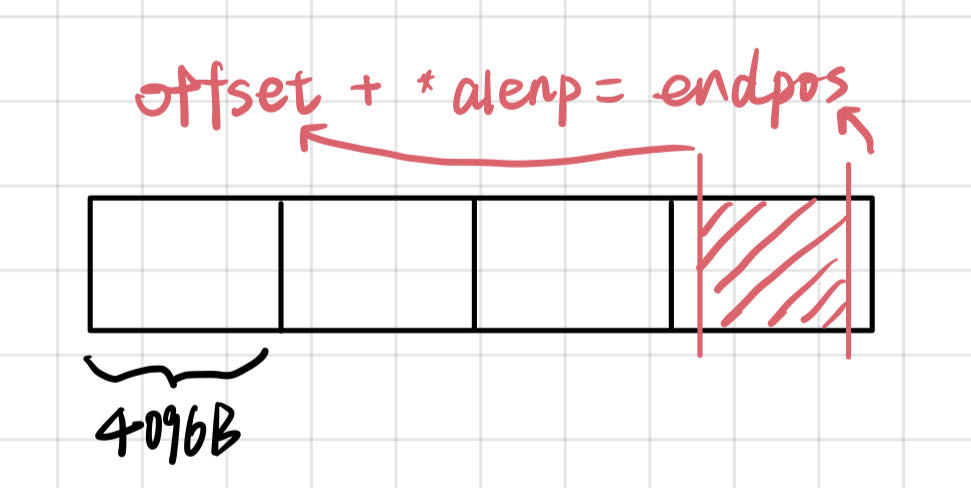 offset + * alenp = endpos
4096B